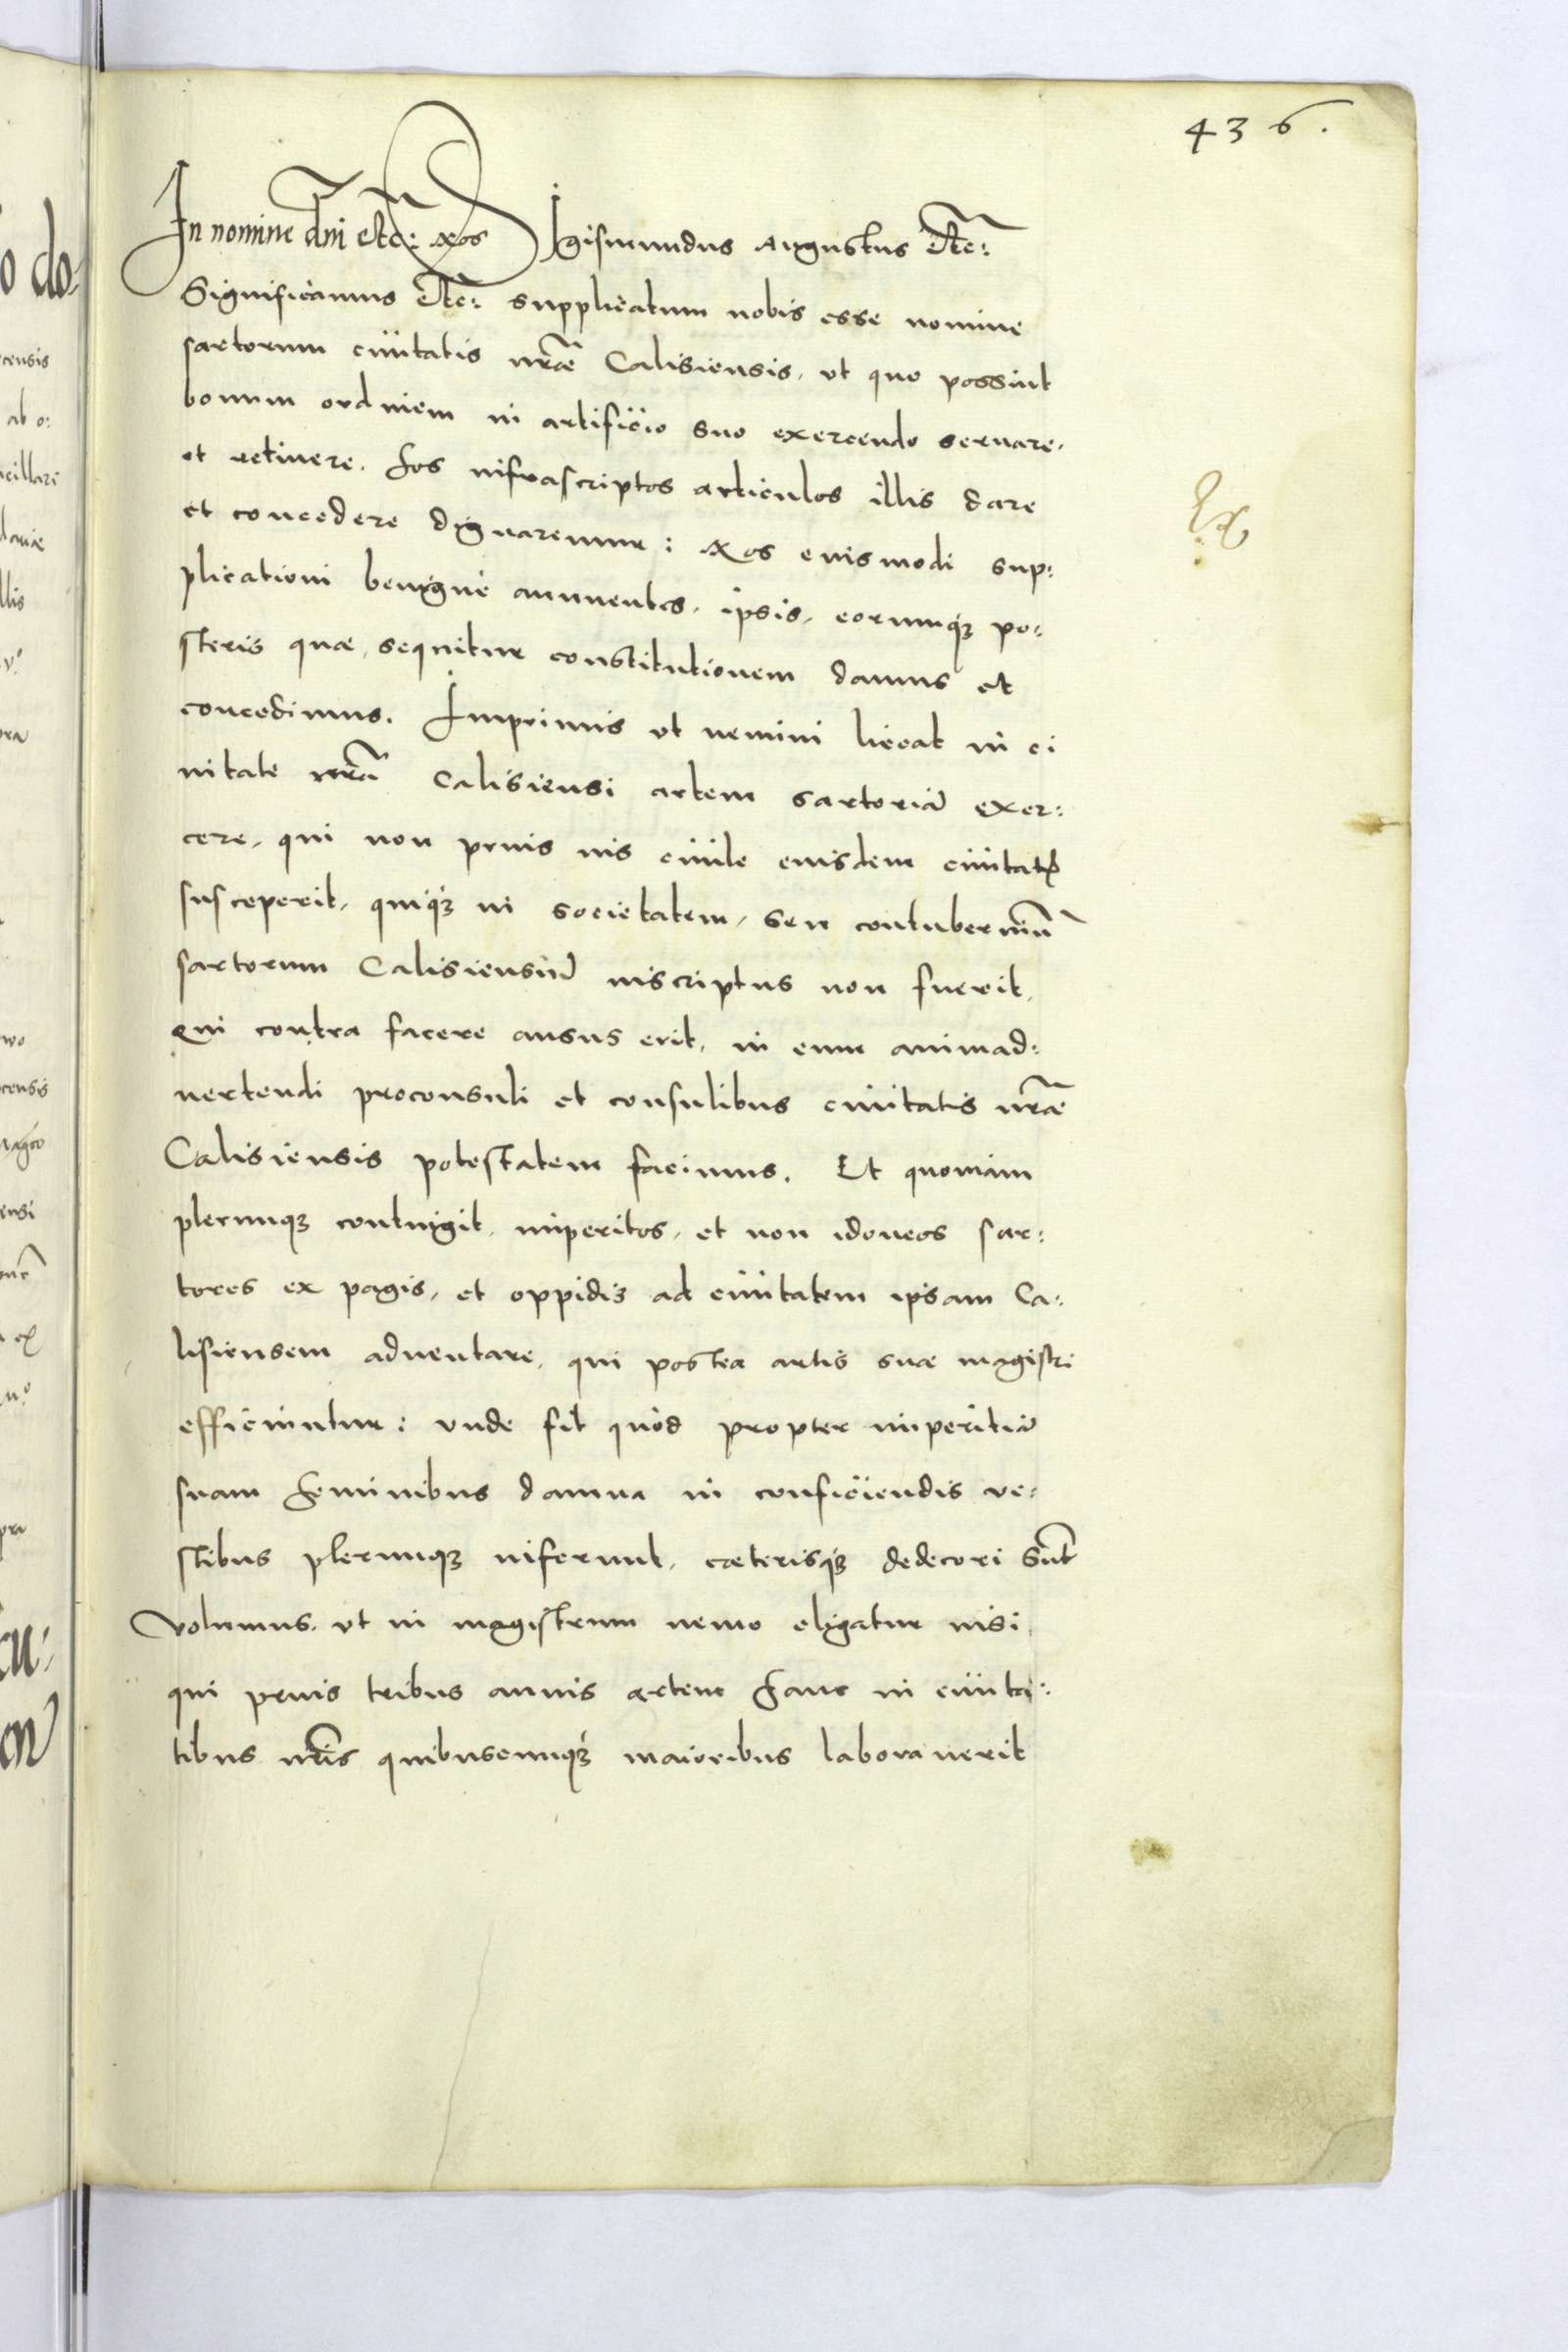 436.
In nomine dñi etc: Nos Sigismundus Augustus etc:
Significamus etc: supplicatum nobis esse nomine
sartorum ciuitatis nr̃ae Calisiensis, ut quo possint
bonum ordinem in artificio suo exercendo seruare,
et retinere, hos infrascriptos articulos illis dare
et concedere dignaremur: Nos euismodi sup:
plicationi benignè annuentes, ipsis, eorumq3 po:
steris quae, sequitur constitutionem damus et
concedimus. Imprimis ut nemini liceat in ci
uitate nr̃a Calisiensi artem sartoriã exer:
cere, qui non prius ius ciuile eiusdem ciuitatꝭ
susceperit, quiq3 in societatem, seu contuberniũ
sartorum Calisiensiũ inscriptus non fuerit,
Qui contra facere ausus erit, in eum animad:
uertendi proconsuli et consulibus ciuitatis nr̃ae
Calisiensis potestatem facimus. Et quoniam
plerunq3 contingit, imperitos, et non idoneos sar:
tores ex pagis, et oppidis ad ciuitatem ipsam Ca:
lisiensem aduentare, qui postea artis suae magistri
efficiuntur: unde fit quòd propter imperitiã
suam hominibus damna in conficiendis ve:
stibus plerunq3 inferunt, caeterisq3 dedecori sũt
Volumus, ut in magistrum nemo eligatur nisi
qui prius tribus annis artem hanc in ciuita:
tibus nr̃is quibuscunq3 maioribus laborauerit